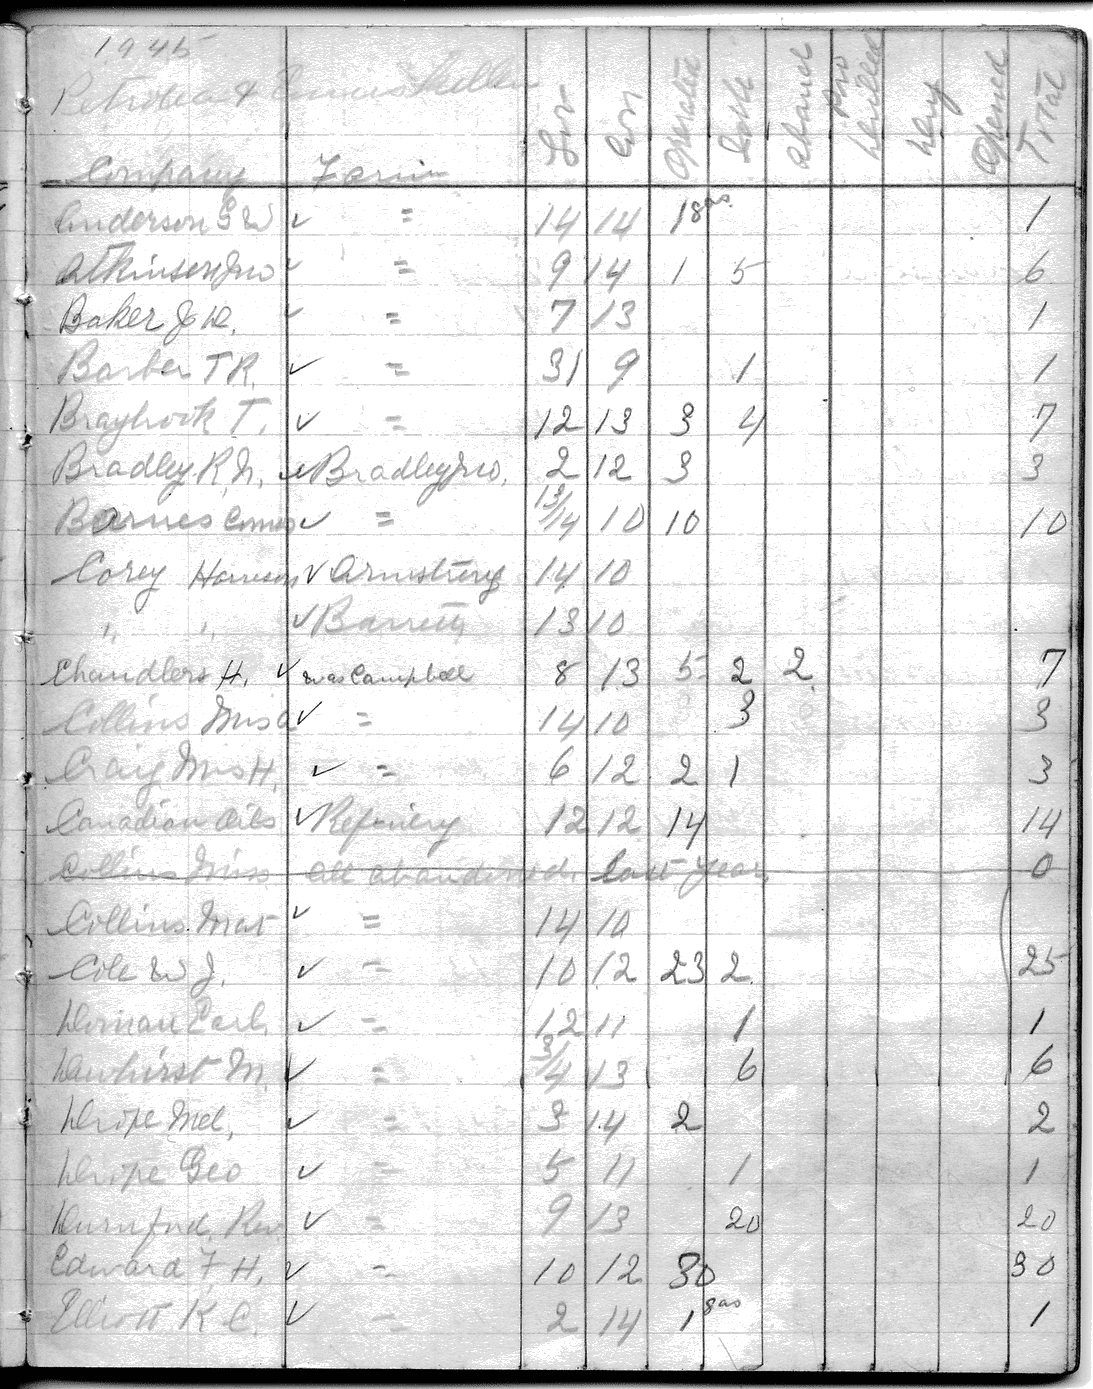 1945
Petrolea & Enniskillen
Company Farm Lot Con Operated Idle Aband New Drilled Dry Opened Total
Anderson G W ✓ = 14 14 1 gas 1
Atkinson Jno ✓ = 9 14 1 5 6
Baker J W. ✓ = 7 13 1
Barber T R. ✓ = 31 9 1 1
Braybrook T. ✓ = 12 13 3 4 7
Bradley R. ✓ Bradley Jno. 2 12 3 3
Barnes ✓ = 13/14 10 10 10
Corey Harrison ✓ Armstrong 14 10
" " ✓ Barrett 13 10
Chandlers H. ✓ was Campbell 8 13 5 2 2 7
Collins Miss ✓ = 14 10 3 3
Craig Mrs H. ✓ = 6 12 2 1 3
Canadian Oils ✓ Refinery 12 12 14 14
Collins Miss all abandoned. last year. 0
Collins Mat ✓ = 14 10
Cole W J. ✓ = 10 12 23 2 25
Dornan Earl, ✓ = 12 11 1 1
Dewhirst M. ✓ = 3/4 13 6 6
Drope Mel, ✓ = 3 14 2 2
Drope Geo ✓ = 5 11 1 1
Durnford, Rev. ✓ = 9 13 20 20
Edward F. H. ✓ = 10 12 30 30
Elliott K C. ✓ = 2 14 1 gas 1